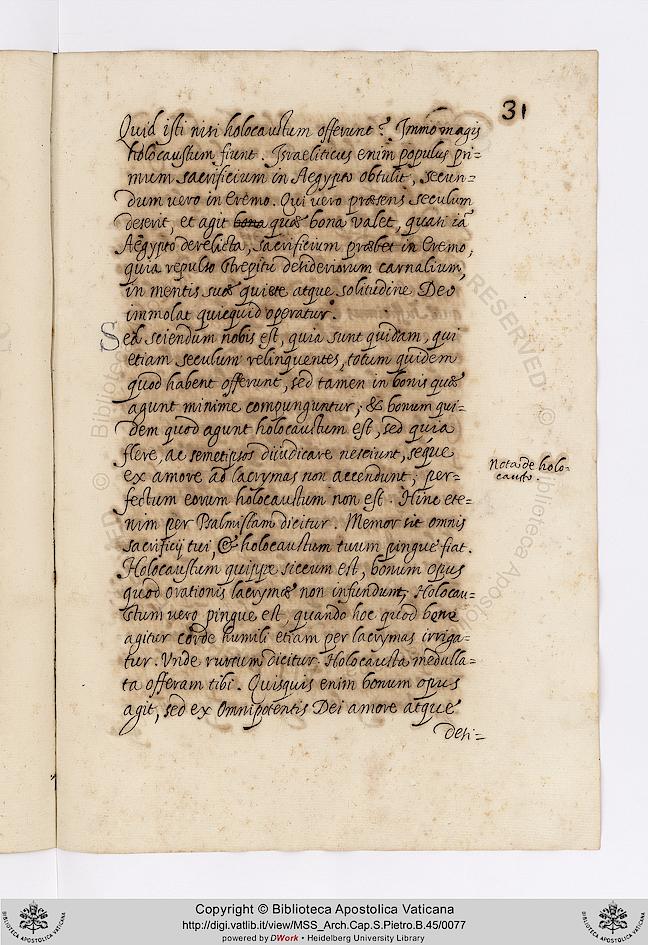 31
Quid isti nisi holocaustum offerunt? Immo magis
holocaustum fiunt. Israeliticus enim populus pri=
mum sacrificium in Aegypto obtulit, secun=
dum vero in Eremo. Qui vero præsens seculum
deserit, et agit bona quæ bona valet, quasi iã
Aegypto derelicta, sacrificium præbet in Eremo;
quia repulso strepitu desideriorum carnalium,
in mentis suæ quiete atque solitudine Deo
immolat quicquid operatur.
Sed sciendum nobis est, quia sunt quidam, qui
etiam seculum relinquentes, totum quidem
quod habent offerunt, sed tamen in bonis quæ
agunt minime compunguntur; & bonum qui=
dem quod agunt holocaustum est, sed quia
flere, ac semetipsos diiudicare nesciunt, seque
ex amore ad lacrymas non accendunt; per=
fectum eorum holocaustum non est. Hinc ete=
nim per Psalmistam dicitur. Memor sit omnis
sacrificij tui & holocaustum tuum pingue fiat.
Holocaustum quippe siccum est, bonum opus
quod orationis lacrymæ non infundunt; Holocau=
stum vero pingue est, quando hoc quod bene
agitur corde humili etiam per lacrymas irriga=
tur. Vnde rursum dicitur: Holocausta medulla=
ta offeram tibi. Quisquis enim bonum opus
agit, sed ex Omnipotentis Dei amore atque
desi=
Nota de holo=
causto.
Copyright © Biblioteca Apostolica Vaticana
http://digi.vatlib.it/view/MSS_Arch.Cap.S.Pietro.B.45/0077
powered by DWork • Heidelberg University Library